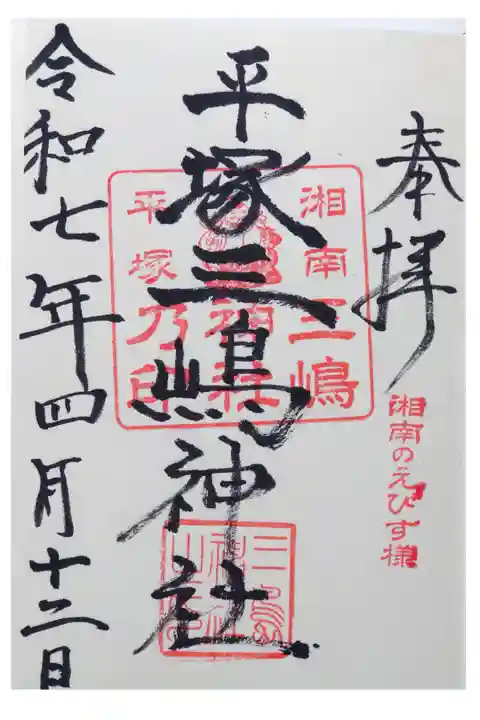 奉拝
湘南のえびす様
平塚三嶋神社
湘南三嶋
神社
平塚乃印
令和七年四月十二日